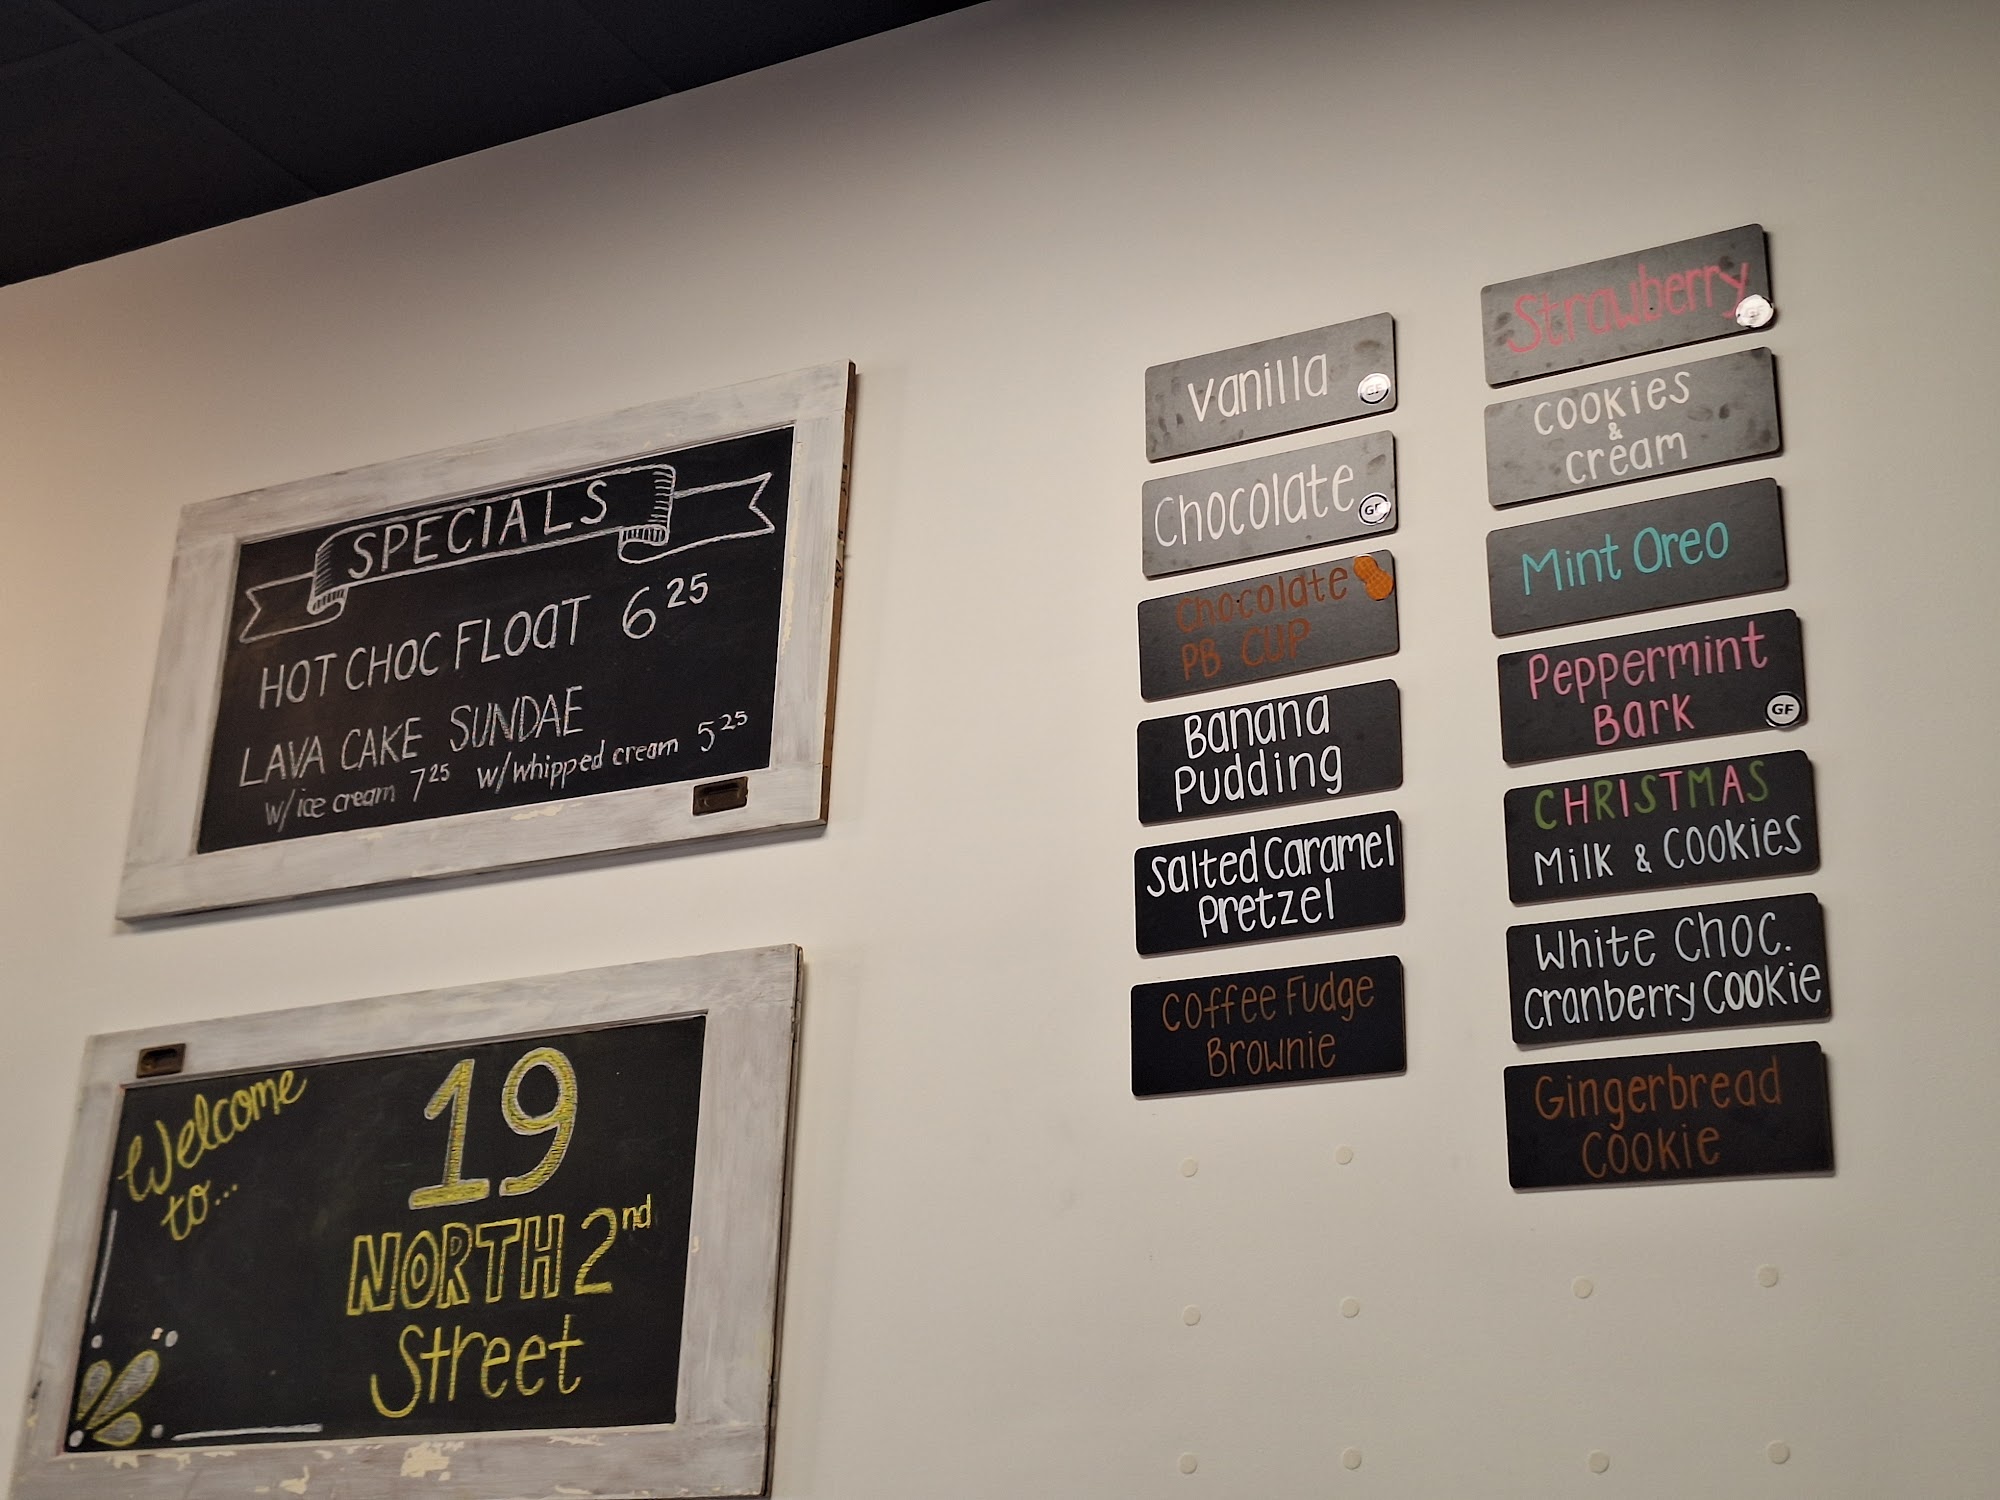 SPECIALS
HOT CHOC FLOAT 6 25
LAVA CAKE SUNDAE
w/ice cream 7 25 w/whipped cream 5 25
Welcome
to...
19
NORTH 2nd
Street
Vanilla
GF
Chocolate
GF
Chocolate
PB CUP
Banana
Pudding
Salted Caramel
Pretzel
Coffee Fudge
Brownie
Strawberry
GF
Cookies
&
cream
Mint Oreo
Peppermint
Bark
GF
CHRISTMAS
Milk & Cookies
White Choc.
Cranberry Cookie
Gingerbread
Cookie